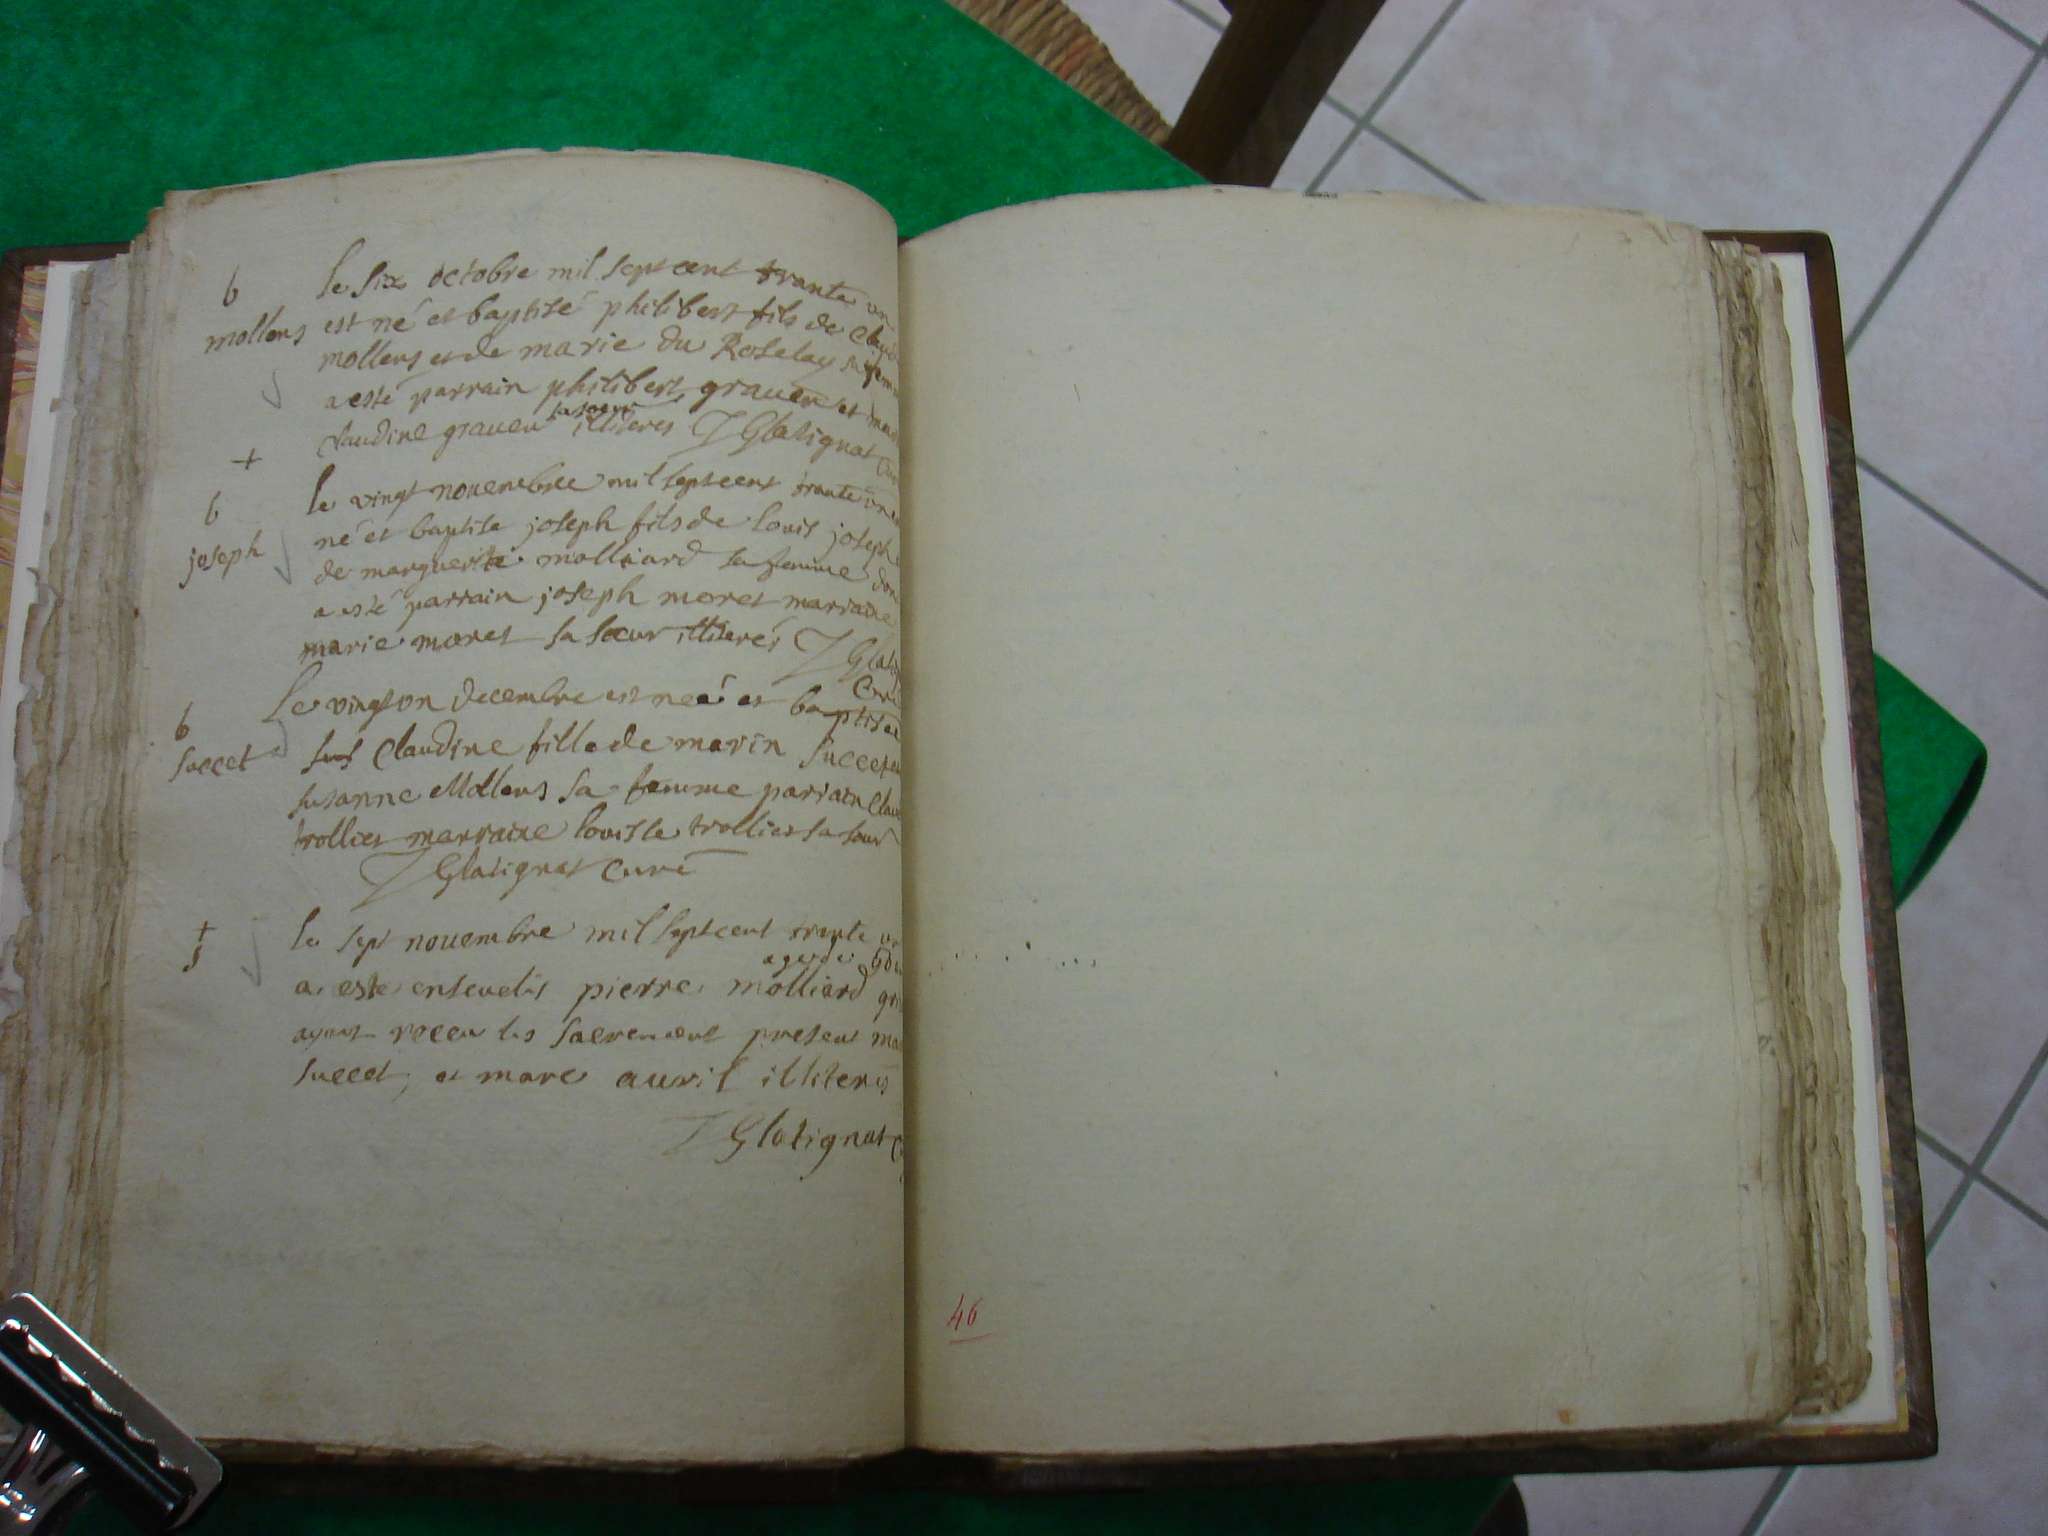 b
mollens
le six octobre mil sept cent trante un
est né et baptisé philibert fils de Claud
mollens et de marie du Roselay sa femm
a esté parrain philibert graven et mar
sa soeur
claudine graven illiteres J Glatignat Cur
+
b
joseph
le vingt nouembre mil sept cent trante un e
né et baptise joseph fils de louis joseph e
de marguerite molliard sa femme don
a esté parrain joseph moret marraine
marie moret sa soeur illiterés J Glatig
Curé
b
succet
Le vingt un decembre est neé et baptisee
Claudine fille de marin Succet
susanne Mollens sa femme parrain Clau
trollies marraine louisse trollies sa soeur
J Glatignat Curé
+
s
le sept nouembre mil sept cent trante un
age de
a este enseuelis pierre molliard
ayant receu les sacrement present ma
succet, et marc auril illiteres
J Glatignat C
46